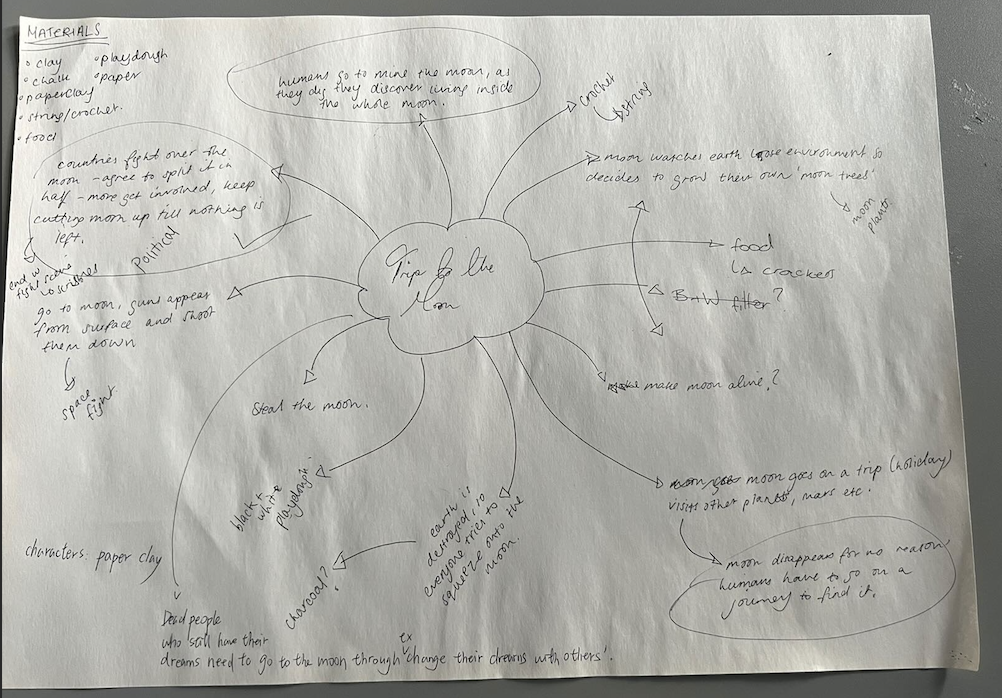 MATERIALS
• clay
• playdough
• chalk
• paper
• paperclay
• string/crochet.
• food
humans go to mine the moon, as
they dig they discover living inside
the whole moon.
crochet
string
countries fight over the
moon - agree to split it in
half - more get involved, keep
cutting moon up till nothing is
left.
Political
end w
fight scene
w scribbles
moon watches earth loose environment so
decides to grow their own 'moon trees'
moon
plants
food
crackers
B+W filter?
Trip to the
Moon
go to moon, guns appear
from surface and shoot
them down
space
fight
Steal the moon.
make moon alive?
black +
white
playdough
earth is
destroyed so
everyone tries to
squeeze onto the
moon.
charcoal?
moon goes moon goes on a trip (holiday)
visits other plants, mars etc.
moon disappears for no reason,
humans have to go on a
journey to find it.
characters: paper clay
Dead people
who still have their
dreams need to go to the moon through 'exchange their dreams with others'.